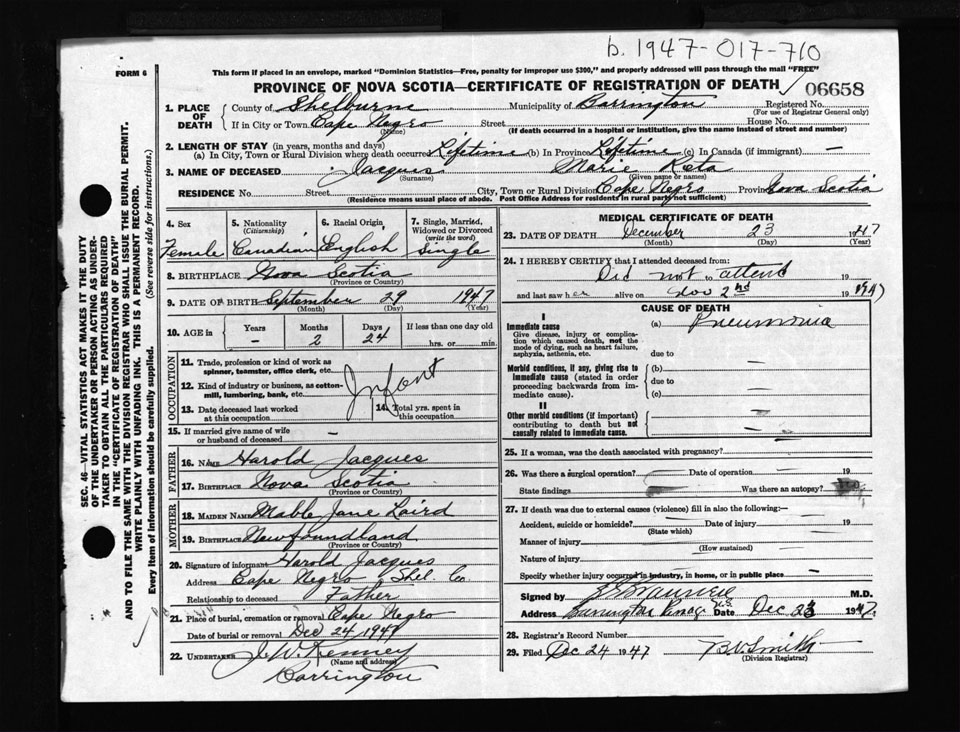 b. 1947-017-710
FORM 6
This form if placed in an envelope, marked "Dominion Statistics—Free, penalty for improper use $300," and properly addressed will pass through the mail "FREE"
PROVINCE OF NOVA SCOTIA—CERTIFICATE OF REGISTRATION OF DEATH
06658
1. PLACE OF DEATH County of Shelburne Municipality of Barrington Registered No.
(For use of Registrar General only)
If in City or Town Cape Negro Street House No.
(Name) (If death occurred in a hospital or institution, give the name instead of street and number)
2. LENGTH OF STAY (in years, months and days)
(a) In City, Town or Rural Division where death occurred Lifetime (b) In Province Lifetime (c) In Canada (if immigrant) —
3. NAME OF DECEASED Jacques Marie Reta
(Surname) (Given name or names)
RESIDENCE No. Street City, Town or Rural Division Cape Negro Province Nova Scotia
(Residence means usual place of abode. Post Office Address for residents in rural parts not sufficient)
4. Sex Female
5. Nationality (Citizenship) Canadian
6. Racial Origin English
7. Single, Married, Widowed or Divorced (write the word) Single
8. BIRTHPLACE Nova Scotia
(Province or Country)
9. DATE OF BIRTH September 29 1947
(Month) (Day) (Year)
10. AGE in Years Months Days If less than one day old
— 2 24 hrs. or min.
OCCUPATION
11. Trade, profession or kind of work as spinner, teamster, office clerk, etc.
12. Kind of industry or business, as cotton-mill, lumbering, bank, etc.
Infant
13. Date deceased last worked at this occupation
14. Total yrs. spent in this occupation
15. If married give name of wife or husband of deceased —
FATHER
16. NAME Harold Jacques
17. BIRTHPLACE Nova Scotia
(Province or Country)
MOTHER
18. MAIDEN NAME Mable Jane Laird
19. BIRTHPLACE Newfoundland
(Province or Country)
20. Signature of informant Harold Jacques
Address Cape Negro Shel. Co
Relationship to deceased Father
21. Place of burial, cremation or removal Cape Negro
Date of burial or removal Dec 24 1947
22. UNDERTAKER J. W. Kenney
(Name and address)
Barrington
MEDICAL CERTIFICATE OF DEATH
23. DATE OF DEATH December 23 1947
(Month) (Day) (Year)
24. I HEREBY CERTIFY that I attended deceased from:
Did not to attend 19
and last saw her alive on Nov 2nd 1947
CAUSE OF DEATH
I
Immediate cause (a) Pneumonia
Give disease, injury or complication which caused death, not the mode of dying, such as heart failure, asphyxia, asthenia, etc.
due to
Morbid conditions, if any, giving rise to immediate cause (stated in order proceeding backwards from immediate cause). (b) —
due to —
(c) —
II
Other morbid conditions (if important) contributing to death but not causally related to immediate cause. —
25. If a woman, was the death associated with pregnancy?
26. Was there a surgical operation? — Date of operation — 19
State findings Was there an autopsy?
27. If death was due to external causes (violence) fill in also the following:—
Accident, suicide or homicide? Date of injury 19
(State which)
Manner of injury
(How sustained)
Nature of injury
Specify whether injury occurred in industry, in home, or in public place —
Signed by M.D.
Address Barrington Date Dec 23 1947
28. Registrar's Record Number
29. Filed Dec 24 1947 B.V. Smith
(Division Registrar)
SEC. 46—VITAL STATISTICS ACT MAKES IT THE DUTY
OF THE UNDERTAKER OR PERSON ACTING AS UNDER-
TAKER TO OBTAIN ALL THE PARTICULARS REQUIRED
IN THE "CERTIFICATE OF REGISTRATION OF DEATH"
AND TO FILE THE SAME WITH THE DIVISION REGISTRAR WHO SHALL ISSUE THE BURIAL PERMIT.
WRITE PLAINLY WITH UNFADING INK. THIS IS A PERMANENT RECORD.
Every item of information should be carefully supplied. (See reverse side for instructions.)